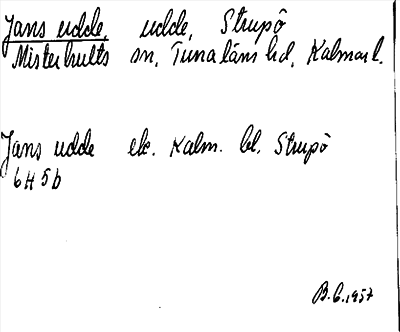 Jans udde, udde, Strupö
Misterhults sn, Tunaläns hd, Kalmar l.
Jans udde ek. Kalm. bl. Strupö
6H 5b
B.G. 1957